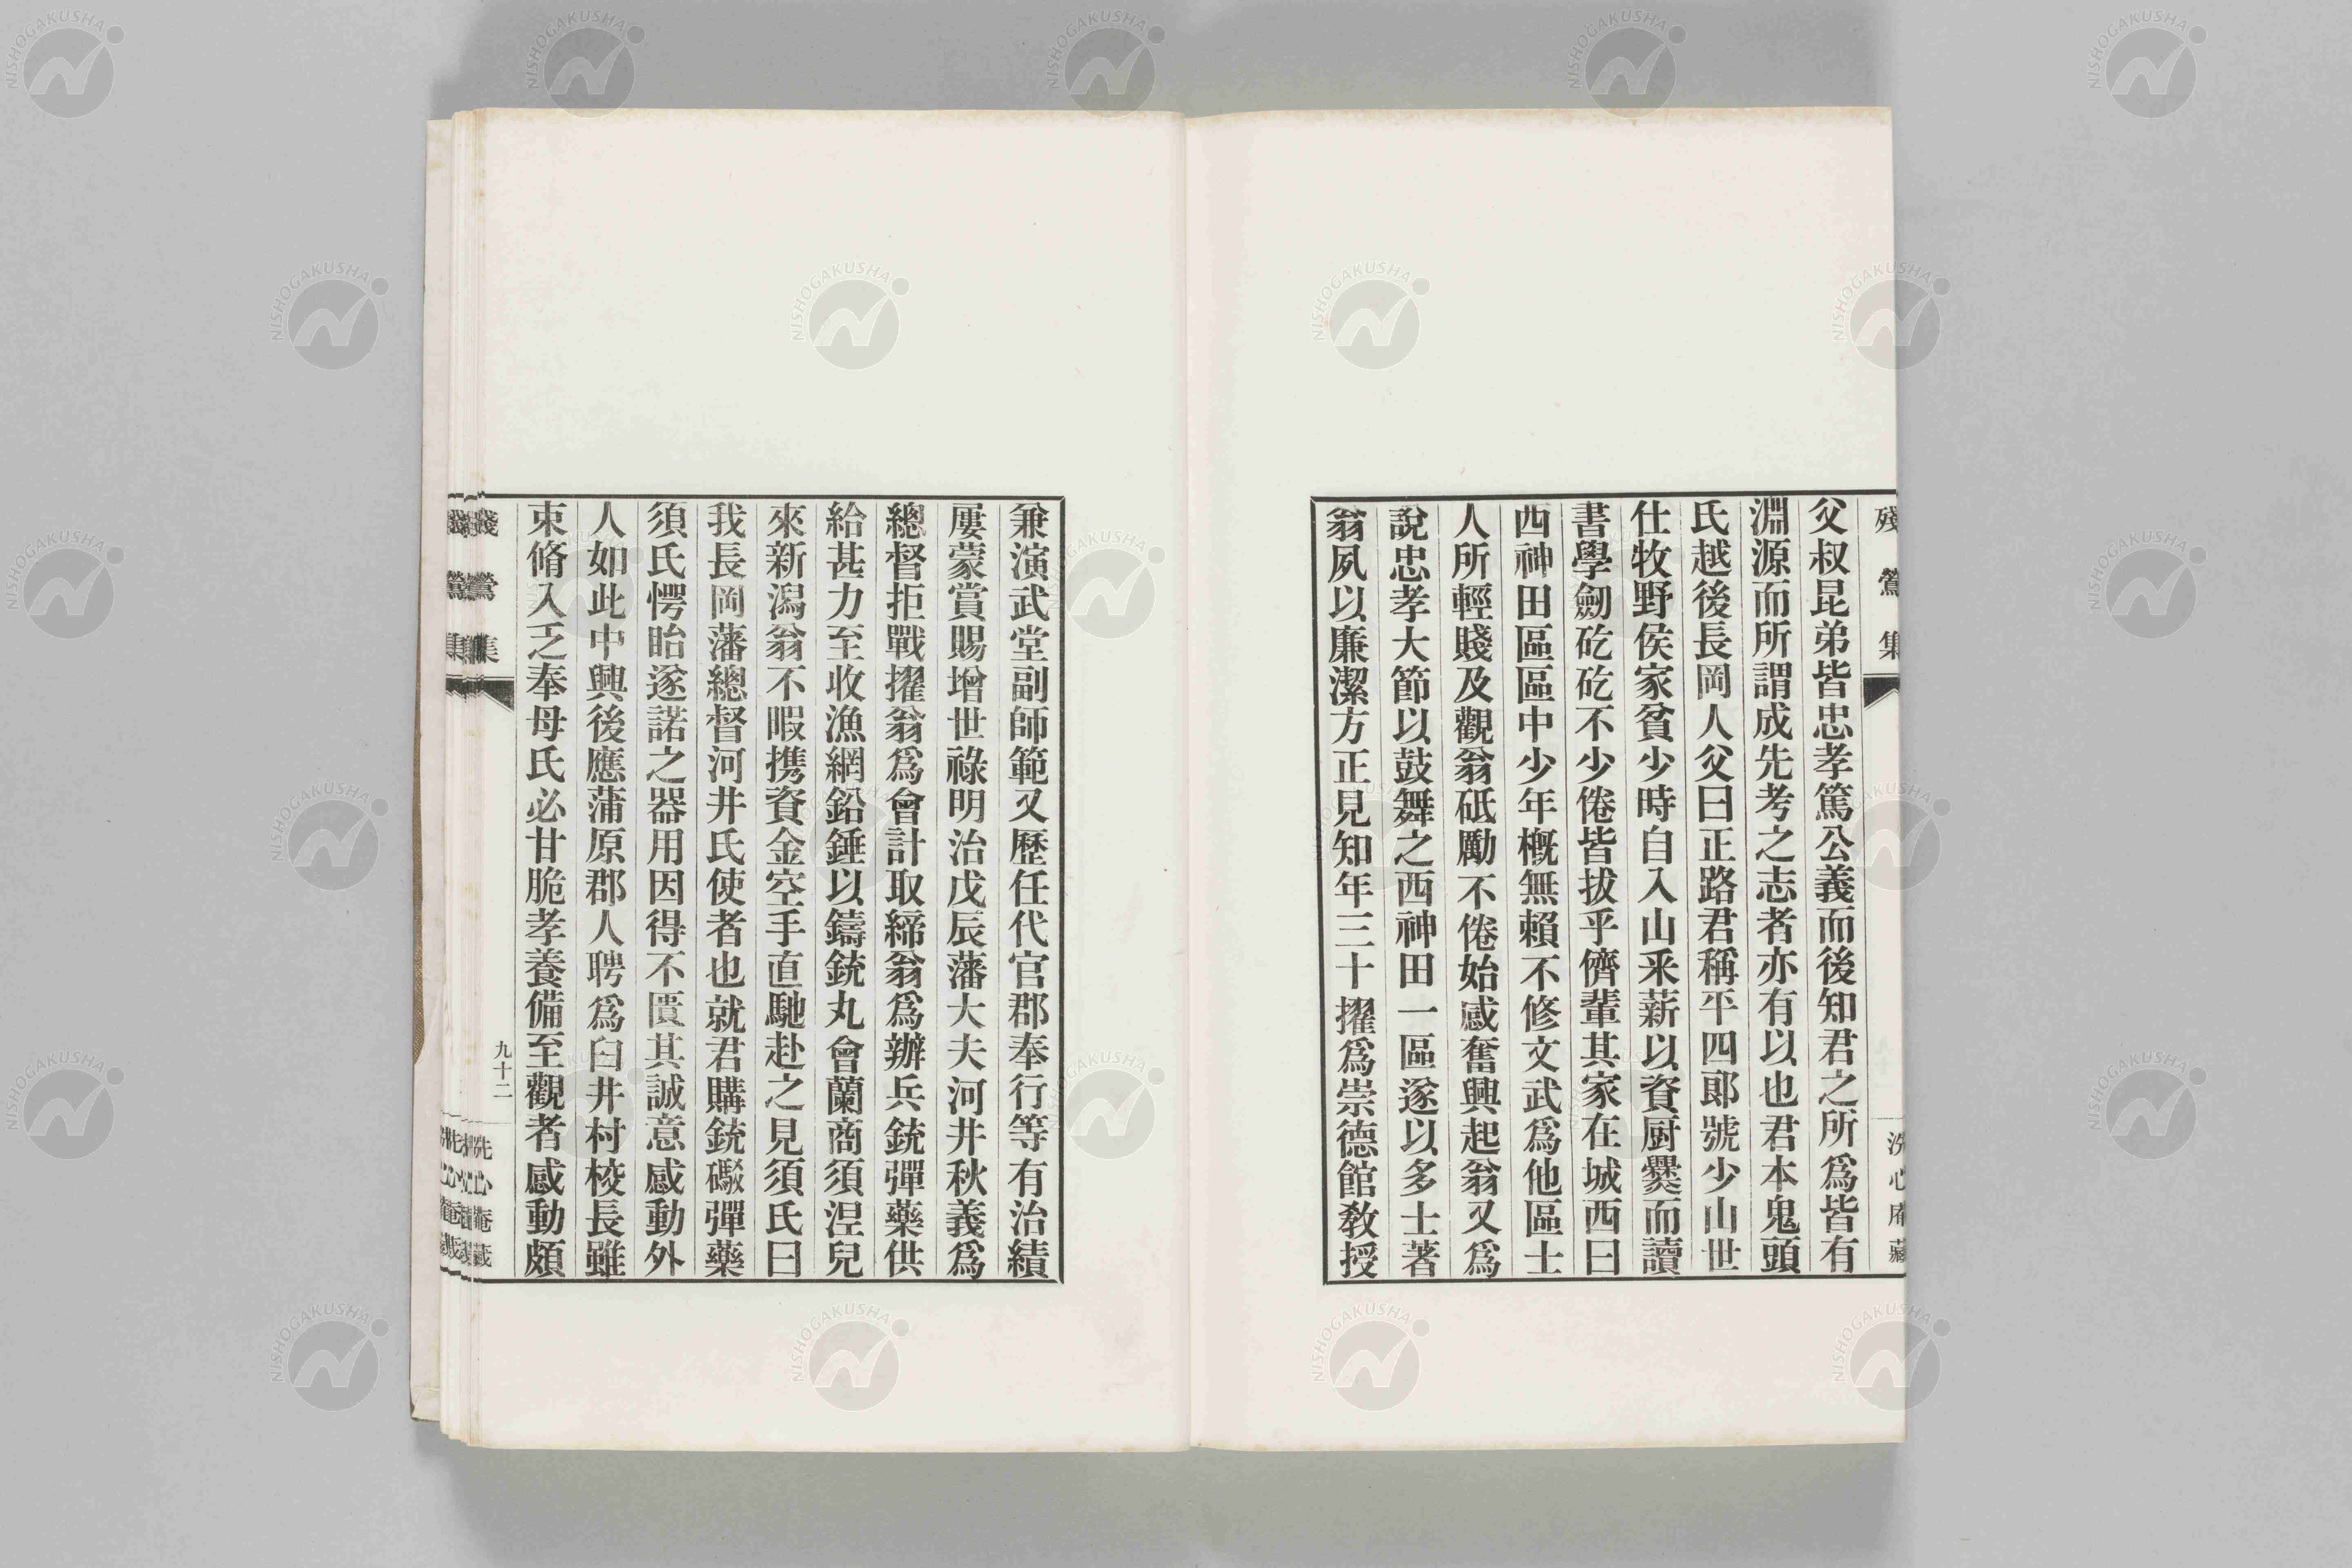 殘鶯集
洗心庵藏
父叔昆弟皆忠孝篤公義而後知君之所爲皆有
淵源而所謂成先考之志者亦有以也君本鬼頭
氏越後長岡人父曰正路君稱平四郎號少山世
仕牧野侯家貧少時自入山釆薪以資厨爨而讀
書學劒矻矻不少倦皆拔乎儕輩其家在城西曰
西神田區區中少年概無賴不修文武爲他區士
人所輕賤及觀翁砥勵不倦始感奮興起翁又爲
說忠孝大節以鼓舞之西神田一區遂以多士著
翁夙以廉潔方正見知年三十擢爲崇德館敎授
兼演武堂副師範又歷任代官郡奉行等有治績
屢蒙賞賜增世祿明治戊辰藩大夫河井秋義爲
總督拒戰擢翁爲會計取締翁爲辦兵銃彈藥供
給甚力至收漁網鉛錘以鑄銃丸會蘭商須涅兒
來新潟翁不暇携資金空手直馳赴之見須氏曰
我長岡藩總督河井氏使者也就君購銃礮彈藥
須氏愕眙遂諾之器用因得不匱其誠意感動外
人如此中興後應蒲原郡人聘爲臼井村校長雖
束脩入乏奉母氏必甘脆孝養備至觀者感動頗
殘鶯集
九十二
洗心庵藏